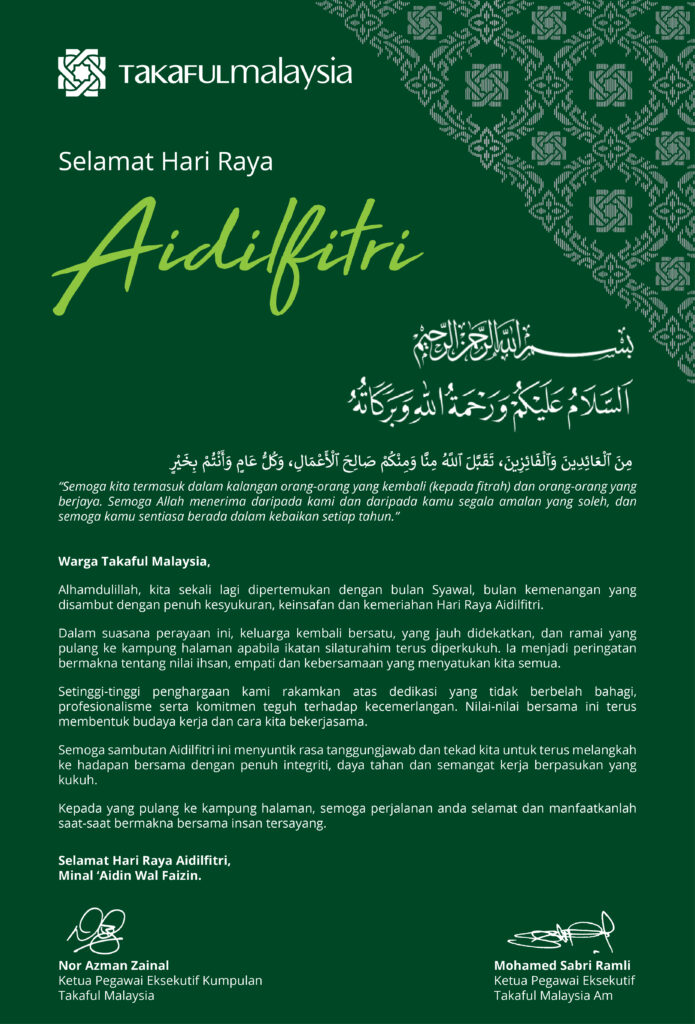 TAKAFULmalaysia
Selamat Hari Raya
Aidilfitri
بِسْمِ اللهِ الرَّحْمٰنِ الرَّحِيْمِ
اَلسَّلَامُ عَلَيْكُمْ وَرَحْمَةُ اللهِ وَبَرَكَاتُهُ
مِنَ ٱلْعَائِدِينَ وَٱلْفَائِزِينَ، تَقَبَّلَ ٱللَّهُ مِنَّا وَمِنْكُمْ صَالِحَ ٱلْأَعْمَالِ، وَكُلُّ عَامٍ وَأَنْتُمْ بِخَيْرٍ
“Semoga kita termasuk dalam kalangan orang-orang yang kembali (kepada fitrah) dan orang-orang yang
berjaya. Semoga Allah menerima daripada kami dan daripada kamu segala amalan yang soleh, dan
semoga kamu sentiasa berada dalam kebaikan setiap tahun.”
Warga Takaful Malaysia,
Alhamdulillah, kita sekali lagi dipertemukan dengan bulan Syawal, bulan kemenangan yang
disambut dengan penuh kesyukuran, keinsafan dan kemeriahan Hari Raya Aidilfitri.
Dalam suasana perayaan ini, keluarga kembali bersatu, yang jauh didekatkan, dan ramai yang
pulang ke kampung halaman apabila ikatan silaturahim terus diperkukuh. Ia menjadi peringatan
bermakna tentang nilai ihsan, empati dan kebersamaan yang menyatukan kita semua.
Setinggi-tinggi penghargaan kami rakamkan atas dedikasi yang tidak berbelah bahagi,
profesionalisme serta komitmen teguh terhadap kecemerlangan. Nilai-nilai bersama ini terus
membentuk budaya kerja dan cara kita bekerjasama.
Semoga sambutan Aidilfitri ini menyuntik rasa tanggungjawab dan tekad kita untuk terus melangkah
ke hadapan bersama dengan penuh integriti, daya tahan dan semangat kerja berpasukan yang
kukuh.
Kepada yang pulang ke kampung halaman, semoga perjalanan anda selamat dan manfaatkanlah
saat-saat bermakna bersama insan tersayang.
Selamat Hari Raya Aidilfitri,
Minal ‘Aidin Wal Faizin.
Nor Azman Zainal
Ketua Pegawai Eksekutif Kumpulan
Takaful Malaysia
Mohamed Sabri Ramli
Ketua Pegawai Eksekutif
Takaful Malaysia Am